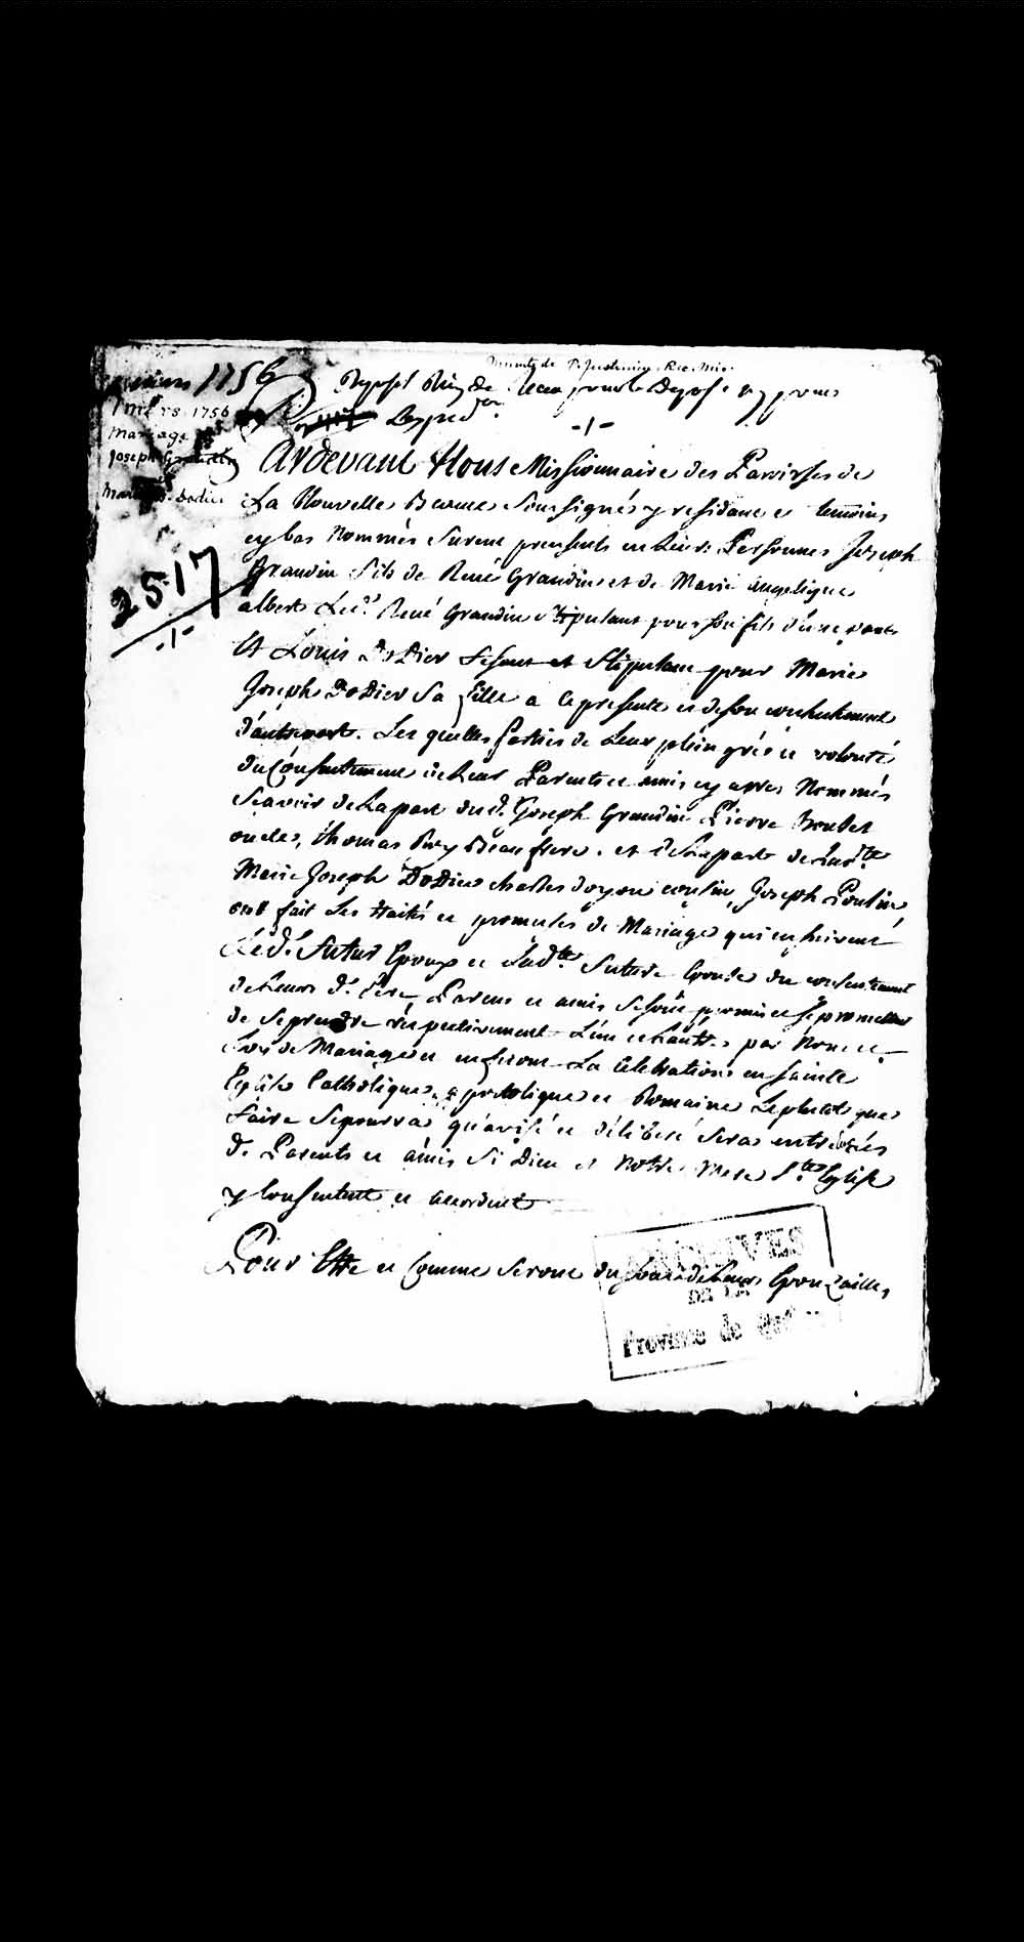 1756
mars 1756
mariage
Joseph Grandin
Dodier
2517
-1-
minute de P. Justinien Rec. Mis.
-1-
Ardevant Nous Missionnaire des Parroisses de
La Nouvelle Beauce Soussignés y residant et temoins
cy bas Nommés furent presents en Leurs Personnes Joseph
Grandin fils de René Grandin et de Marie Angelique
albert Led.t René Grandin stipulant pour Son fils d'une part
Et Louis DoDier fesant et Stipulant pour Marie
Joseph DoDier Sa fille a Ce presente et de son consentement
d'autre part. Les quelles Parties de Leur plein gré et volonté
du Consentement de Leurs Parents et amis cy apres Nommés
Scavoir de La part dud.t Joseph Grandin Pierre Boulet
oncle, thomas Beaufrere. et de La part de Lad.te
Marie Joseph DoDier charles doyon cousin, Joseph Poulin
ont fait Les traités et promesses de Mariage qui en suivent
Led.t Futur Epoux et Lad.te future Epouse du consentement
de Leurs d.t Pere, Parens et amis se sont promis et se promettent
de se prendre respectivement L'un et L'autre par Nom et
Loy de Mariage et en feront La Celebration en Sainte
Eglise Catholique, apostolique et Romaine Le plutot que
faire Se pourra qu'avisé et déliberé Sera entre
de Parents et amis Si Dieu et Notre Mere S.te Eglise
y Consentent et accordent
Pour Etre et Comme Seront du jour de Leurs Epouzailles
ARCHIVES
DE LA
Province de